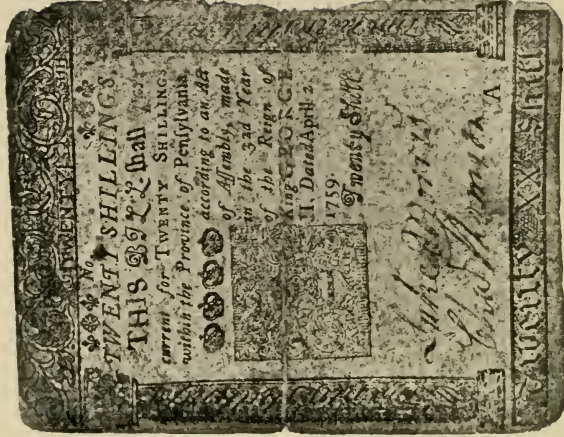 TWENTY SHILL
No.
TWENTY SHILLINGS.
THIS BILL ſhall Paſs
current for TWENTY SHILLINGS
within the Province of Penſylvania,
according to an Act
of Aſſembly, made
in the 32d Year
of the Reign of
King GEORGE
II. Dated April 2
1759.
Twenty Shill
Luke Morris
Cha Thomson
A
Twenty XX Shill